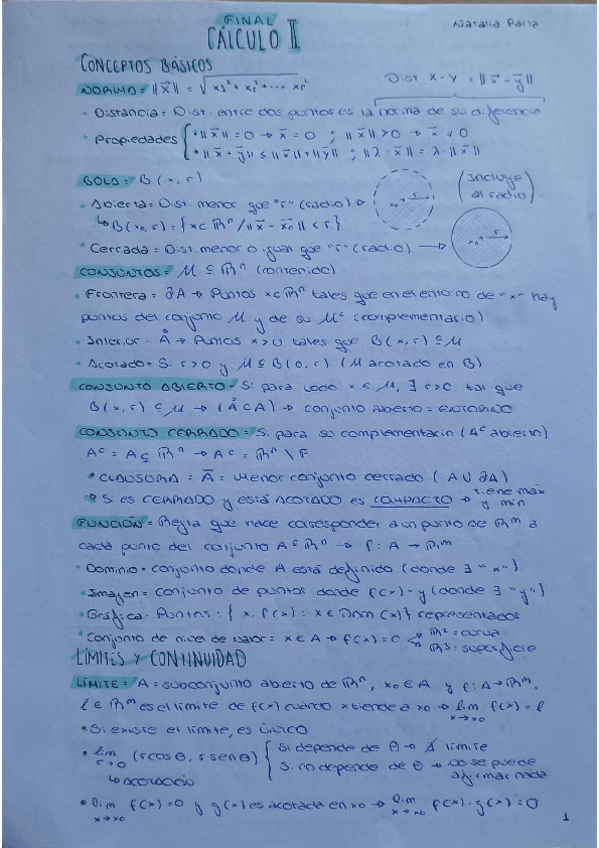 FINAL
CÁLCULO II
Natalia Parla
CONCEPTOS BÁSICOS
NORMA = ||x̄|| = √x₁² + x₂² + ... xₙ²
Dist x - y = ||x̄ - ȳ||
• Distancia = Dist. entre dos puntos es la norma de su diferencia
• Propiedades { • ||x̄|| = 0 → x̄ = 0 ; ||x̄|| > 0 → x̄ ≠ 0
• ||x̄ + ȳ|| ≤ ||x̄|| + ||ȳ|| ; ||λ · x̄|| = λ · ||x̄||
BOLA = B(x, r)
(Incluye al radio)
• Abierta = Dist menor que "r" (radio) →
↳ B(x₀, r) = {x ∈ ℝⁿ / ||x̄ - x̄₀|| < r}
x₀ r
• Cerrada = Dist menor o igual que "r" (radio) →
x₀ r
CONJUNTOS = M ⊆ ℝⁿ (contenido)
• Frontera = ∂A → Puntos x ∈ ℝⁿ tales que en el entorno de "x" hay
puntos del conjunto M y de su Mᶜ (complementario)
• Interior = Å → Puntos x > 0 tales que B(x, r) ⊆ M
• Acotado = Si r > 0 y M ⊆ B(0, r) (M acotado en B)
CONJUNTO ABIERTO = Si para todo x ∈ M, ∃ r > 0 tal que
B(x, r) ⊆ M → (Å ⊂ A) → conjunto abierto = ENTORNO
CONJUNTO CERRADO = Si para su complementario (Aᶜ abierto)
Aᶜ = A ⊆ ℝⁿ → Aᶜ = ℝⁿ \ F
• CLAUSURA = Ā = Menor conjunto cerrado (A ∪ ∂A)
• Si es CERRADO y está ACOTADO es COMPACTO → Tiene máx y mín
FUNCIÓN = Regla que hace corresponder a un punto de ℝᵐ a
cada punto del conjunto A ⊂ ℝⁿ → f: A → ℝᵐ
• Dominio = conjunto donde A está definido (donde ∃ "x")
• Imagen = conjunto de puntos donde f(x) = y (donde ∃ "y")
• Gráfica = Puntos: {x, f(x) : x ∈ Dom(x)} representados
• Conjunto de nivel de valor = x ∈ A → f(x) = c → ℝ² = curva
ℝ³ = superficie
LÍMITES Y CONTINUIDAD
LÍMITE = A = subconjunto abierto de ℝⁿ, x₀ ∈ A y f: A → ℝᵐ.
ℓ ∈ ℝᵐ es el límite de f(x) cuando x tiende a x₀ → lim x→x₀ f(x) = ℓ
• Si existe el límite, es ÚNICO
• lim r→0 (r cosθ, r senθ) { Si depende de θ → ∄ límite
↳ ACOTACIÓN
Si no depende de θ → No se puede afirmar nada
• lim x→x₀ f(x) = 0 y g(x) es acotada en x₀ → lim x→x₀ f(x) · g(x) = 0
1